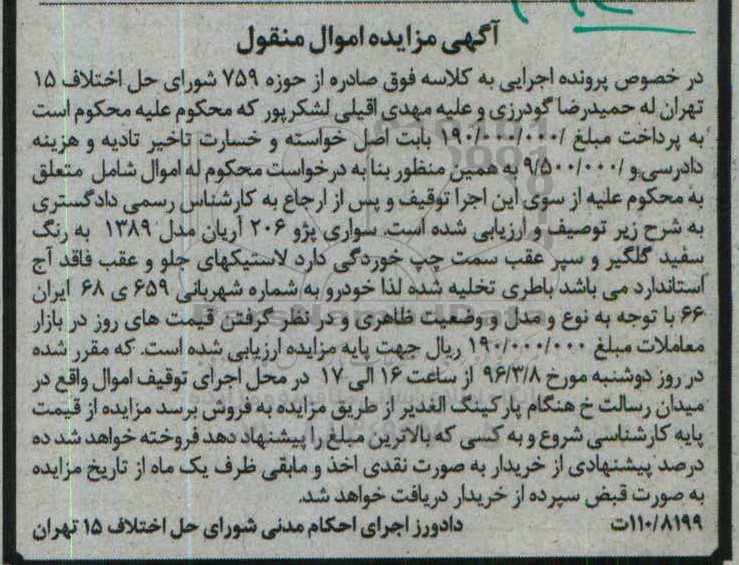 آگهی مزایده اموال منقول
در خصوص پرونده اجرایی به کلاسه فوق صادره از حوزه ۷۵۹ شورای حل اختلاف ۱۵
تهران له حمیدرضا گودرزی و علیه مهدی اقیلی لشکرپور که محکوم علیه محکوم است
به پرداخت مبلغ /۱۹۰/۰۰۰/۰۰۰ بابت اصل خواسته و خسارت تاخیر تادیه و هزینه
دادرسی و /۹/۵۰۰/۰۰۰ به همین منظور بنا به درخواست محکوم له اموال شامل متعلق
به محکوم علیه از سوی این اجرا توقیف و پس از ارجاع به کارشناس رسمی دادگستری
به شرح زیر توصیف و ارزیابی شده است. سواری پژو ۲۰۶ آریان مدل ۱۳۸۹ به رنگ
سفید گلگیر و سپر عقب سمت چپ خوردگی دارد لاستیکهای جلو و عقب فاقد آج
استاندارد می باشد باطری تخلیه شده لذا خودرو به شماره شهربانی ۶۵۹ ی ۶۸ ایران
۶۶ با توجه به نوع و مدل و وضعیت ظاهری و در نظر گرفتن قیمت های روز در بازار
معاملات مبلغ ۱۹۰/۰۰۰/۰۰۰ ریال جهت پایه مزایده ارزیابی شده است. که مقرر شده
در روز دوشنبه مورخ ۹۶/۳/۸ از ساعت ۱۶ الی ۱۷ در محل اجرای توقیف اموال واقع در
میدان رسالت خ هنگام پارکینگ الغدیر از طریق مزایده به فروش برسد مزایده از قیمت
پایه کارشناسی شروع و به کسی که بالاترین مبلغ را پیشنهاد دهد فروخته خواهد شد ده
درصد پیشنهادی از خریدار به صورت نقدی اخذ و مابقی ظرف یک ماه از تاریخ مزایده
به صورت قبض سپرده از خریدار دریافت خواهد شد.
۱۱۰/۸۱۹۹ت دادورز اجرای احکام مدنی شورای حل اختلاف ۱۵ تهران
ParsNamadData